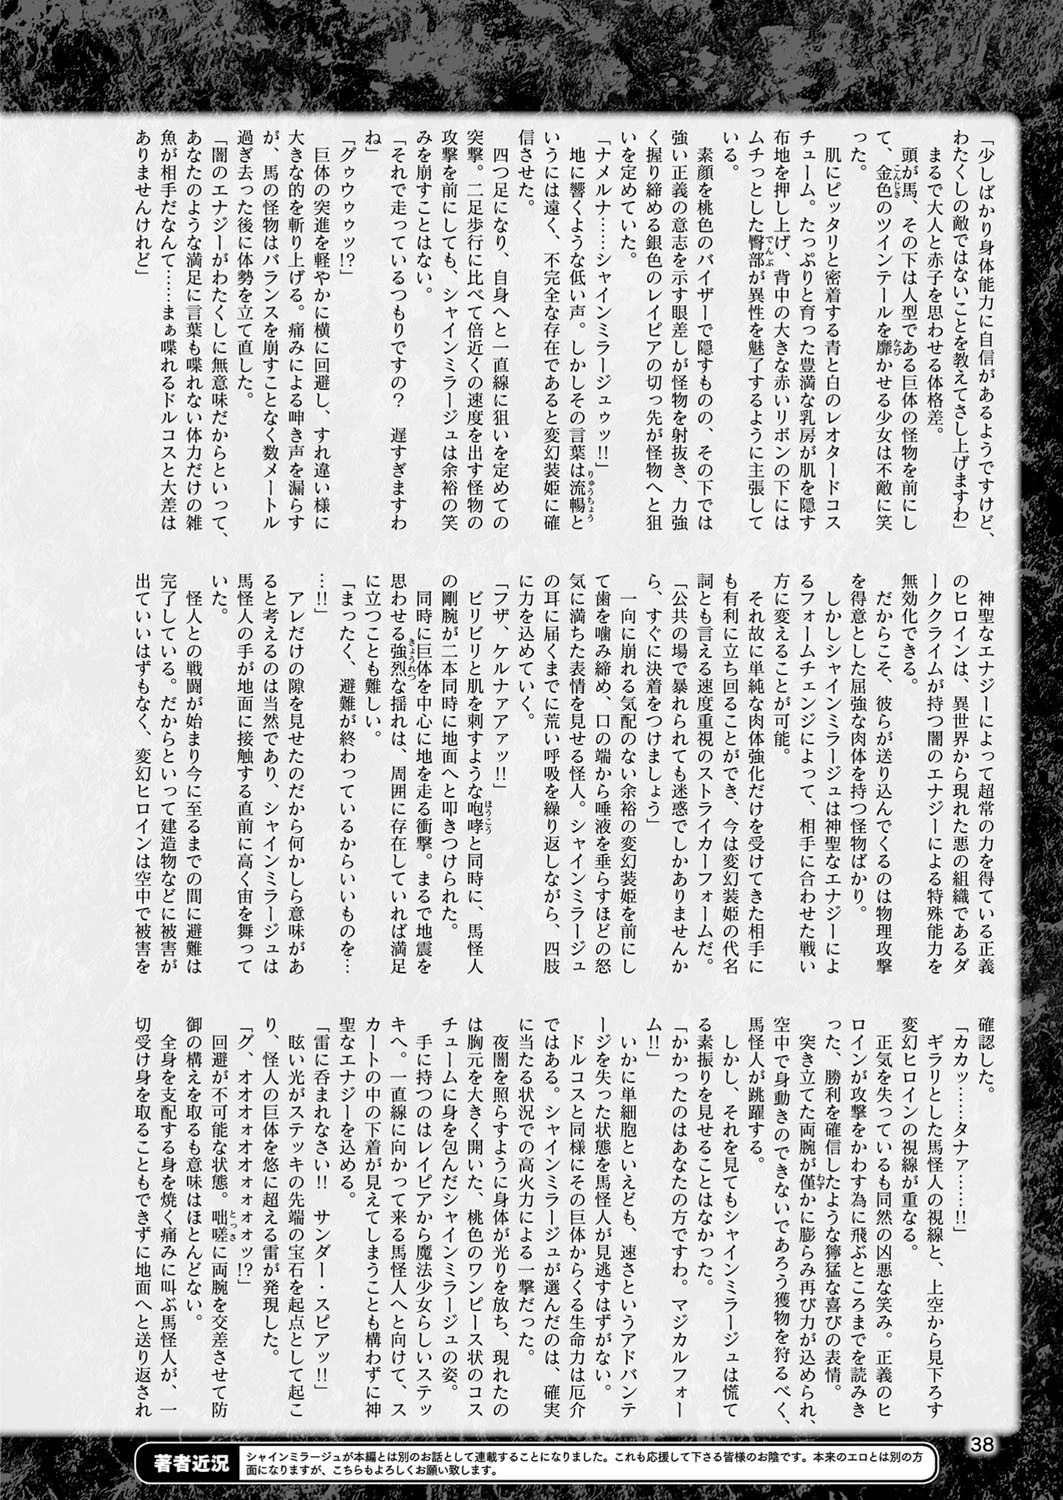 「少しばかり身体能力に自信があるようですけど、
わたくしの敵ではないことを教えてさし上げますわ」
まるで大人と赤子を思わせる体格差。
頭が馬、その下は人型である巨体の怪物を前にし
て、金色のツインテールを靡かせる少女は不敵に笑
った。
肌にピッタリと密着する青と白のレオタードコス
チューム。たっぷりと育った豊満な乳房が肌を隠す
布地を押し上げ、背中の大きな赤いリボンの下には
ムチっとした臀部が異性を魅了するように主張して
いる。
素顔を桃色のバイザーで隠すものの、その下では
強い正義の意志を示す眼差しが怪物を射抜き、力強
く握り締める銀色のレイピアの切っ先が怪物へと狙
いを定めていた。
「ナメルナ……シャインミラージュゥッ!!」
地に響くような低い声。しかしその言葉は流暢と
いうには遠く、不完全な存在であると変幻装姫に確
信させた。
四つ足になり、自身へと一直線に狙いを定めての
突撃。二足歩行に比べて倍近くの速度を出す怪物の
攻撃を前にしても、シャインミラージュは余裕の笑
みを崩すことはない。
「それで走っているつもりですの？　遅すぎますわ
ね」
「グゥウウゥゥッ!?」
巨体の突進を軽やかに横に回避し、すれ違い様に
大きな的を斬り上げる。痛みによる呻き声を漏らす
が、馬の怪物はバランスを崩すことなく数メートル
過ぎ去った後に体勢を立て直した。
「闇のエナジーがわたくしに無意味だからといって、
あなたのような満足に言葉も喋れない体力だけの雑
魚が相手だなんて……まぁ喋れるドルコスと大差は
ありませんけれど」
神聖なエナジーによって超常の力を得ている正義
のヒロインは、異世界から現れた悪の組織であるダ
ーククライムが持つ闇のエナジーによる特殊能力を
無効化できる。
だからこそ、彼らが送り込んでくるのは物理攻撃
を得意とした屈強な肉体を持つ怪物ばかり。
しかしシャインミラージュは神聖なエナジーによ
るフォームチェンジによって、相手に合わせた戦い
方に変えることが可能。
それ故に単純な肉体強化だけを受けてきた相手に
も有利に立ち回ることができ、今は変幻装姫の代名
詞とも言える速度重視のストライカーフォームだ。
「公共の場で暴れられても迷惑でしかありませんか
ら、すぐに決着をつけましょう」
一向に崩れる気配のない余裕の変幻装姫を前にし
て歯を噛み締め、口の端から唾液を垂らすほどの怒
気に満ちた表情を見せる怪人。シャインミラージュ
の耳に届くまでに荒い呼吸を繰り返しながら、四肢
に力を込めていく。
「フザ、ケルナァアァッ!!」
ビリビリと肌を刺すような咆哮と同時に、馬怪人
の剛腕が二本同時に地面へと叩きつけられた。
同時に巨体を中心に地を走る衝撃。まるで地震を
思わせる強烈な揺れは、周囲に存在していれば満足
に立つことも難しい。
「まったく、避難が終わっているからいいものを…
…!!」
アレだけの隙を見せたのだから何かしら意味があ
ると考えるのは当然であり、シャインミラージュは
馬怪人の手が地面に接触する直前に高く宙を舞って
いた。
怪人との戦闘が始まり今に至るまでの間に避難は
完了している。だからといって建造物などに被害が
出ていいはずもなく、変幻ヒロインは空中で被害を
確認した。
「カカッ……タナァ……!!」
ギラリとした馬怪人の視線と、上空から見下ろす
変幻ヒロインの視線が重なる。
正気を失っているも同然の凶悪な笑み。正義のヒ
ロインが攻撃をかわす為に飛ぶところまでを読みき
った、勝利を確信したような獰猛な喜びの表情。
突き立てた両腕が僅かに膨らみ再び力が込められ、
空中で身動きのできないであろう獲物を狩るべく、
馬怪人が跳躍する。
しかし、それを見てもシャインミラージュは慌て
る素振りを見せることはなかった。
「かかったのはあなたの方ですわ。マジカルフォー
ム!!」
いかに単細胞といえども、速さというアドバンテ
ージを失った状態を馬怪人が見逃すはずがない。
ドルコスと同様にその巨体からくる生命力は厄介
ではある。シャインミラージュが選んだのは、確実
に当たる状況での高火力による一撃だった。
夜闇を照らすように身体が光りを放ち、現れたの
は胸元を大きく開いた、桃色のワンピース状のコス
チュームに身を包んだシャインミラージュの姿。
手に持つのはレイピアから魔法少女らしいステッ
キへ。一直線に向かって来る馬怪人へと向けて、ス
カートの中の下着が見えてしまうことも構わずに神
聖なエナジーを込める。
「雷に呑まれなさい!!　サンダー・スピアッ!!」
眩い光がステッキの先端の宝石を起点として起こ
り、怪人の巨体を悠に超える雷が発現した。
「グ、オオオォオオォォォッ!?」
回避が不可能な状態。咄嗟に両腕を交差させて防
御の構えを取るも意味はほとんどない。
全身を支配する身を焼く痛みに叫ぶ馬怪人が、一
切受け身を取ることもできずに地面へと送り返され
38
著者近況
シャインミラージュが本編とは別のお話として連載することになりました。これも応援して下さる皆様のお陰です。本来のエロとは別の方
面になりますが、こちらもよろしくお願い致します。